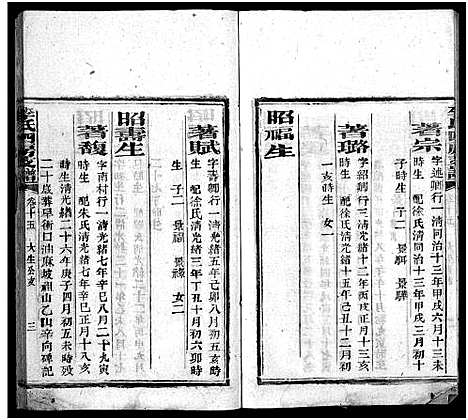 著宗
字述卿行一清同治十三年甲戌六月十三未
時生 配徐氏清同治十三年甲戌三月初十
子時生 子二 景 景驊
著璐
字紹卿行三清光緒十二年丙戌正月十三亥
時生 配徐氏清光緒十五年己丑十二月初
一亥時生
昭福生
著賦
字書卿行一清光緒五年己卯八月初五亥
時生 配徐氏清光緒三年丁丑十月初六卯時
生 子二 景 景緣 女二
昭壽生
著馥
字南村行一清光緒七年辛巳八月二十九寅
時生 配朱氏清光緒七年辛巳正月十八亥
時生清光緒二十六年庚子四月初五未時歿
二十歲葬早衝口油麻坡祖山乙山辛向碑記
李氏四房支譜
卷十五
大生公支
三